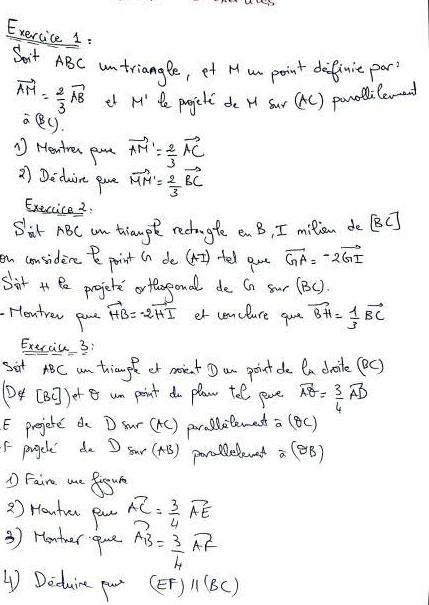 Exercice 1:
Soit ABC un triangle, et M un point définie par:
AM = 2/3 AB et M' le projeté de M sur (AC) parallèlement
à (BC).
1) Montrer que AM' = 2/3 AC
2) Déduire que MM' = 2/3 BC
Exercice 2:
Soit ABC un triangle rectangle en B, I milieu de [BC]
on considère le point G de (AI) tel que GA = -2GI
Soit H le projeté orthogonal de G sur (BC).
- Montrer que HB = -2HI et conclure que BH = 1/3 BC
Exercice 3:
Soit ABC un triangle et soient D un point de la droite (BC)
(D∉ [BC]) et O un point du plan tel que AO = 3/4 AD
E projeté de D sur (AC) parallèlement à (OC)
F projeté de D sur (AB) parallèlement à (OB)
1) Faire une figure
2) Montrer que AC = 3/4 AE
3) Montrer que AB = 3/4 AF
4) Déduire que (EF) // (BC)